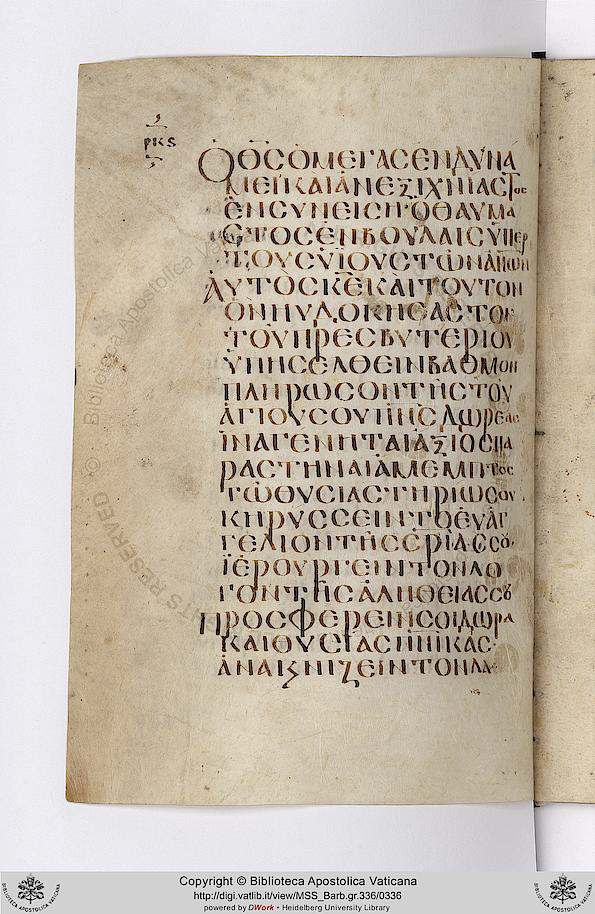 ρκς
ὉΘ̅Σ̅ὁΜΕΓΑΣΕΝΔΥΝΑ
ΜΕΙΚΑΙἈΝΕΞΙΧΝΙΑΣΤος
ἘΝΣΥΝΕΣΕΙ·ὉΘΑΥΜΑ
ΣΤΟΣἘΝΒΟΥΛΑΙΣΥΠΕΡ
ΤΟΥΣΥἱΟΥΣΤῶΝΑΝΩΝ
ΑΥΤΟΣΚΕΚΑΙΤΟΥΤΟΝ
ὉΝΗΥΔΟΚΗΣΑΣΤΟΝ
ΤΟΥΠΡΕΣΒΥΤΕΡΙΟΥ
ὙΠΗΣΕΛΘΕΙΝΒΑΘΜΟΝ
ΠΛΗΡΩΣΟΝΤΗΣΤΟΥ
ἉΓΙΟΥΣΟΥΠΝΣΔΩΡΕΑΣ
ἹΝΑΓΕΝΗΤΑΙΑΞΙΟΣΠΑ
ΡΑΣΤΗΝΑΙἈΜΕΜΠΤΟΣ
ΤῶΘΥΣΙΑΣΤΗΡΙΩΣΟΥ
ΚΗΡΥΣΣΕΙΝΤΟἐΥΑΓ
ΓΕΛΙΟΝΤΗΣΣΡΙΑΣΣΟΥ·
ἹΕΡΟΥΡΓΕΙΝΤΟΝΛΟ
ΓΟΝΤΗΣἈΛΗΘΕΙΑΣΣΟΥ
ΠΡΟΣΦΕΡΕΙΝΣΟΙΔῶΡΑ
ΚΑΙΘΥΣΙΑΣΠΝΙΚΑΣ·
ἈΝΑΚΕΝΙΖΕΙΝΤΟΝΛΑ
Copyright © Biblioteca Apostolica Vaticana
http://digi.vatlib.it/view/MSS_Barb.gr.336/0336
powered by DWork • Heidelberg University Library